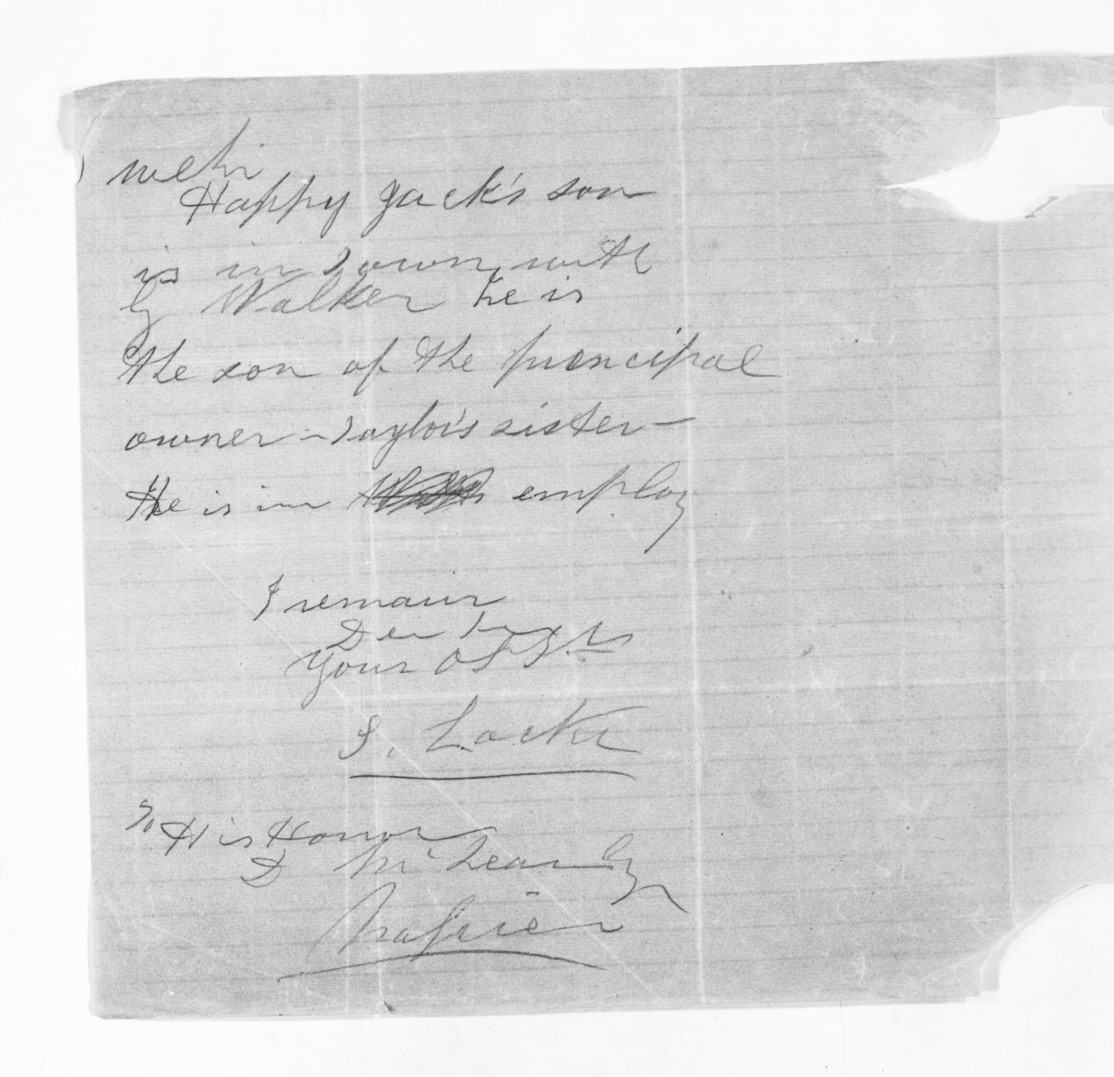 Happy Jack's son
is in Town with
G Walker he is
the son of the principal
owner - Taylor's sister -
He is in employ
I remain
Dear
Your Obt St
S. Locke
To His Honor
D McLean Esq
Napier